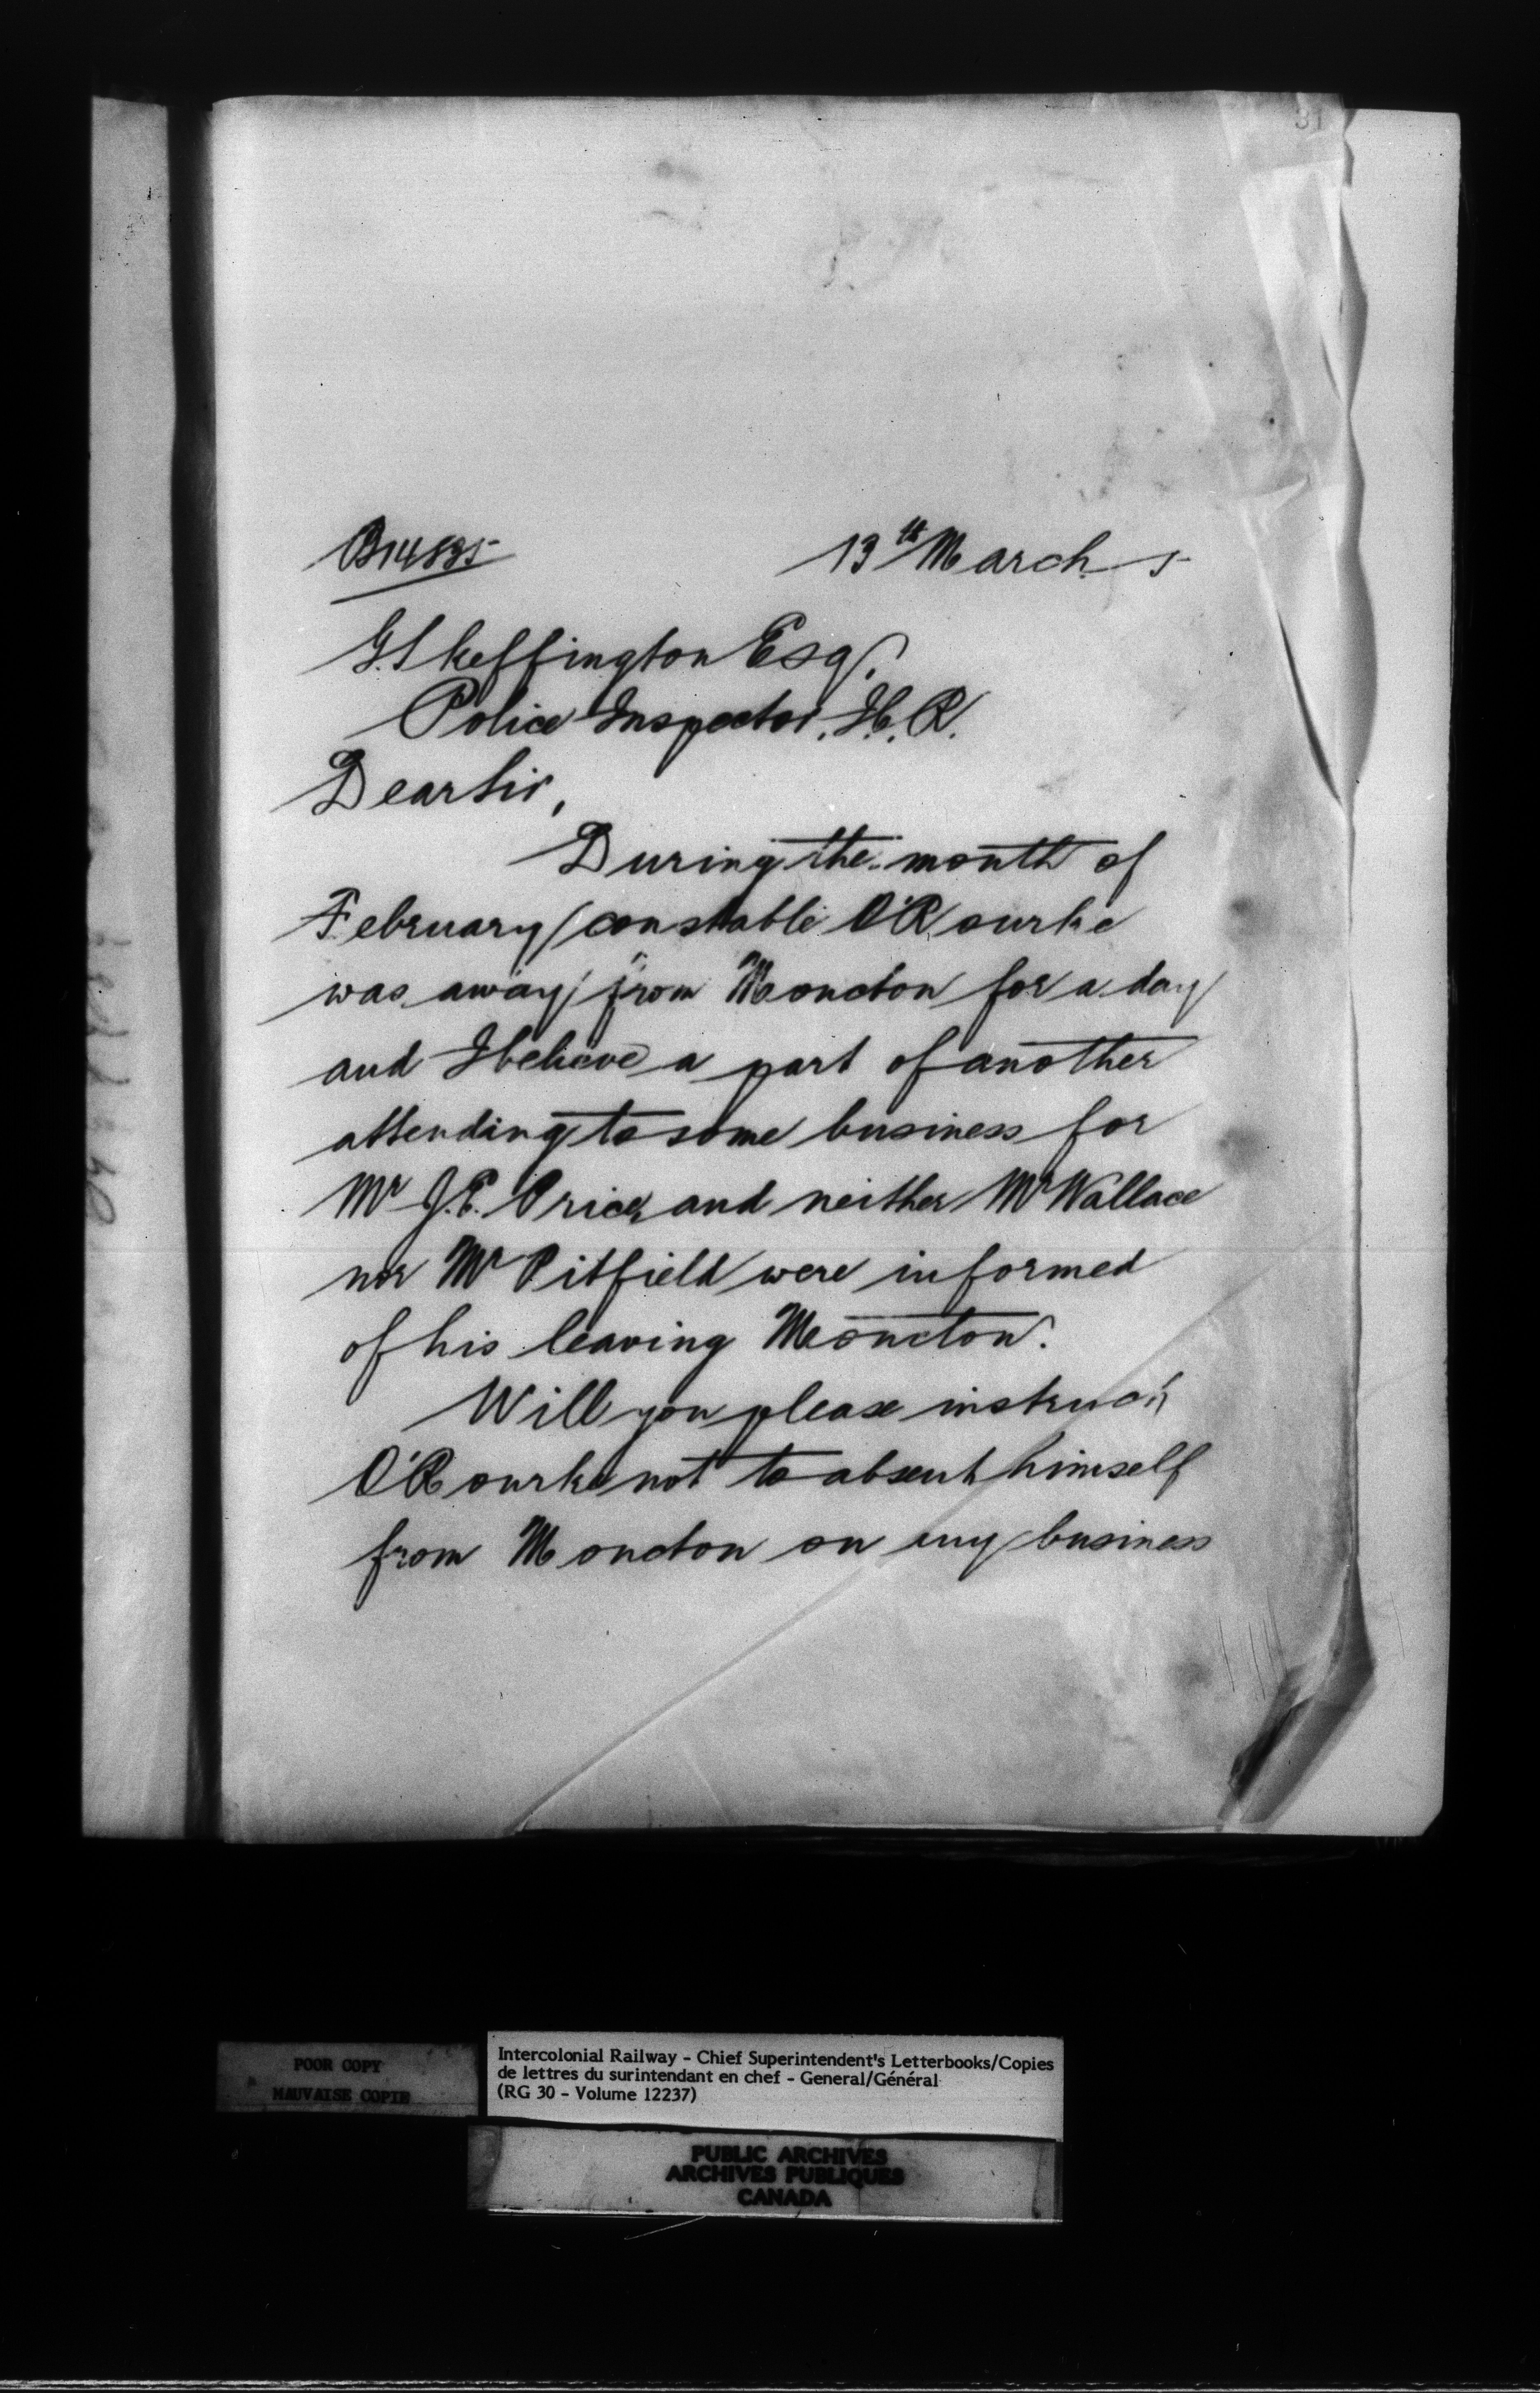 31
B14885
13th March 5
G. Skeffington Esq.
Police Inspector, I.C.R.
Dear Sir,
During the month of
February constable O'Rourke
was away from Moncton for a day
and I believe a part of another
attending to some business for
Mr J.E. Price, and neither Mr Wallace
nor Mr Pitfield were informed
of his leaving Moncton.
Will you please instruct
O'Rourke not to absent himself
from Moncton on any business
POOR COPY
MAUVAISE COPIE
Intercolonial Railway - Chief Superintendent's Letterbooks/Copies
de lettres du surintendant en chef - General/Général
(RG 30 - Volume 12237)
PUBLIC ARCHIVES
ARCHIVES PUBLIQUES
CANADA